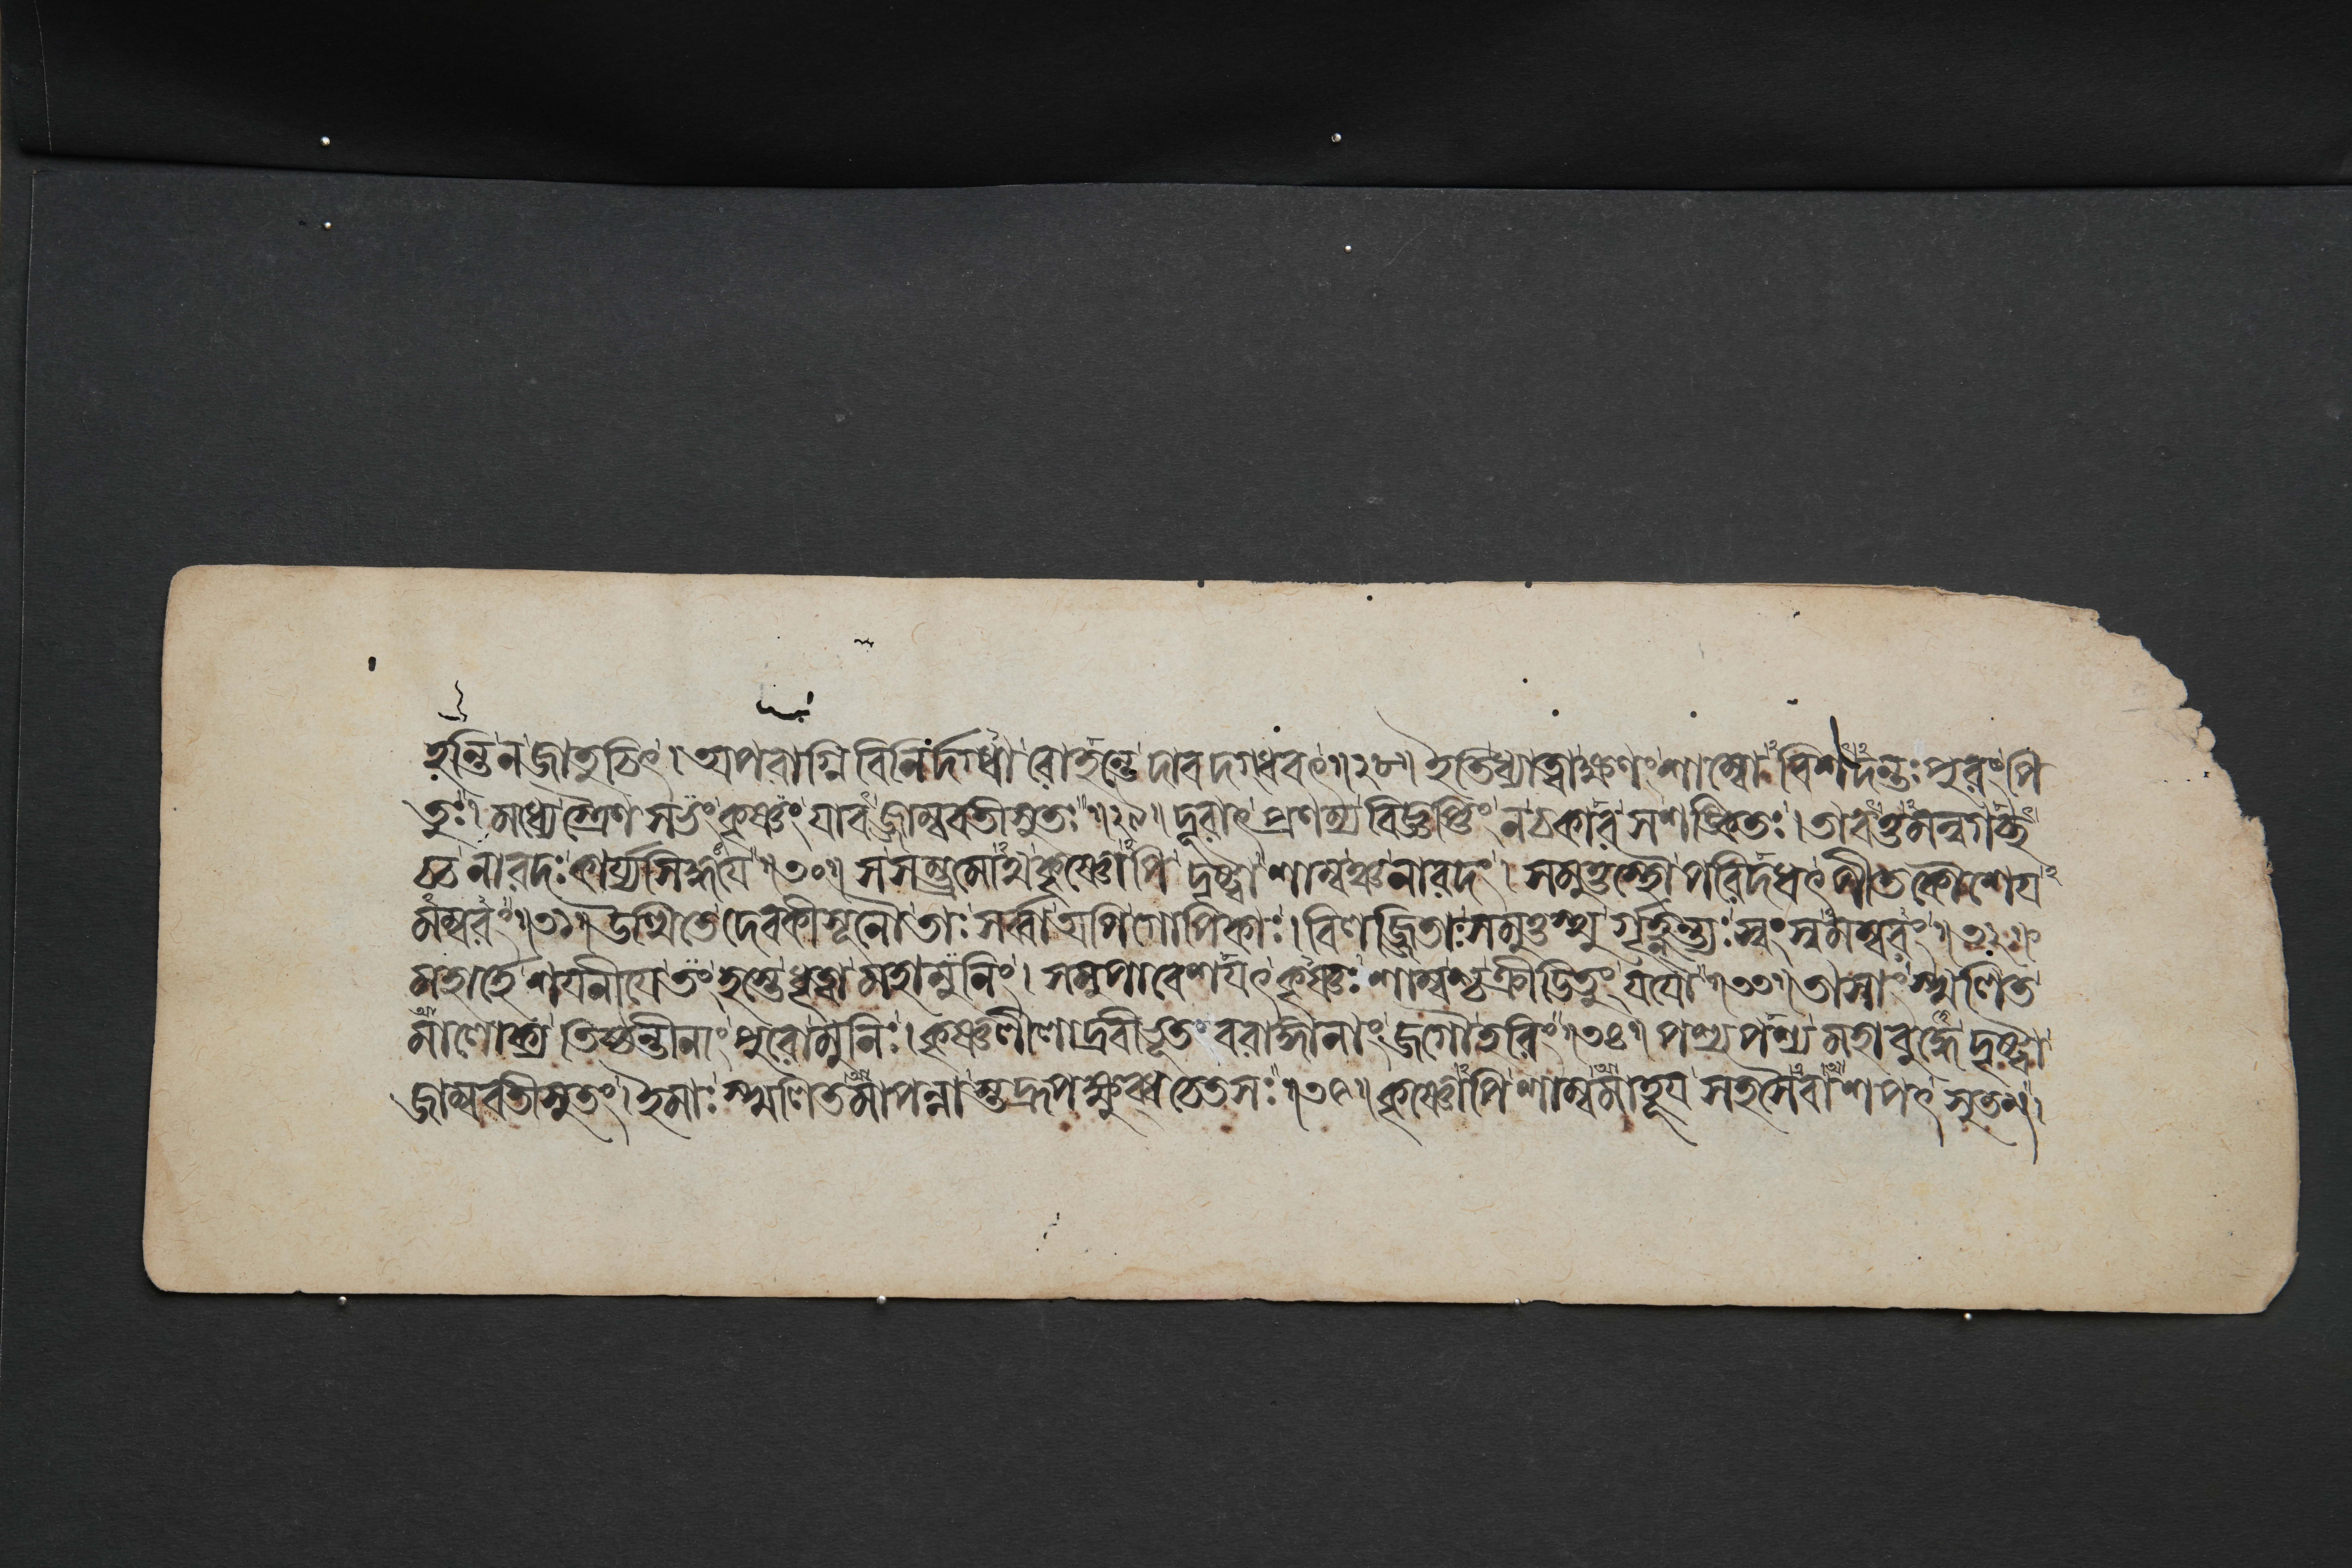 হন্তি ন জাতুচিৎ । অপবাগ্নিবিনির্দগ্ধা রোহন্তে দাবদগ্ধবৎ ॥২৮॥ ইতি ধ্যাত্বা ক্ষণং শাম্বোঽবিশদন্তঃপুরং পি
তুঃ । মধ্যে স্ত্রৈণসভং কৃষ্ণং যাবজ্জাম্ববতীসুতঃ ॥২৯॥ দূরাৎ প্রণম্য বিজ্ঞপ্তিং ন চকার সশঙ্কিতঃ । তাবত্তমন্বগচ্ছ
চ্চ নারদঃ কার্য্যসিদ্ধয়ে ॥৩০॥ সসম্ভ্রমোঽথ কৃষ্ণোঽপি দৃষ্ট্বা শাম্বঞ্চ নারদং । সমুত্তস্থৌ পরিদধৎ পীতকৌশেয়
মম্বরং ॥৩১॥ উত্থিতে দেবকীসূনৌ তাঃ সর্ব্বা অপি গোপিকাঃ । বিলজ্জিতাঃ সমুত্তস্থুর্গৃহ্ণন্ত্যঃ স্বং স্বমম্বরং ॥৩২॥
মহার্হে শয়নীয়ে তং হস্তে ধৃত্বা মহামুনিং । সমুপাবেশয়ৎ কৃষ্ণঃ শাম্বশ্চ ক্রীডিতুং যযৌ ॥৩৩॥ তাসাং স্খলিত
মালোক্য তিষ্ঠন্তীনাং পুরো মুনিঃ । কৃষ্ণলীলাদ্রবীভূতং বরাঙ্গানাং জগৌ হরিং ॥৩৪॥ পশ্য পশ্য মহাবুদ্ধে দৃষ্ট্বা
জাম্ববতীসুতং । ইমাঃ স্খলিতমাপন্নাস্তদ্রূপক্ষুব্ধচেতসঃ ॥৩৫॥ কৃষ্ণোঽপি শাম্বমাহূয় সহসৈবাশপৎ সুতম্ ।